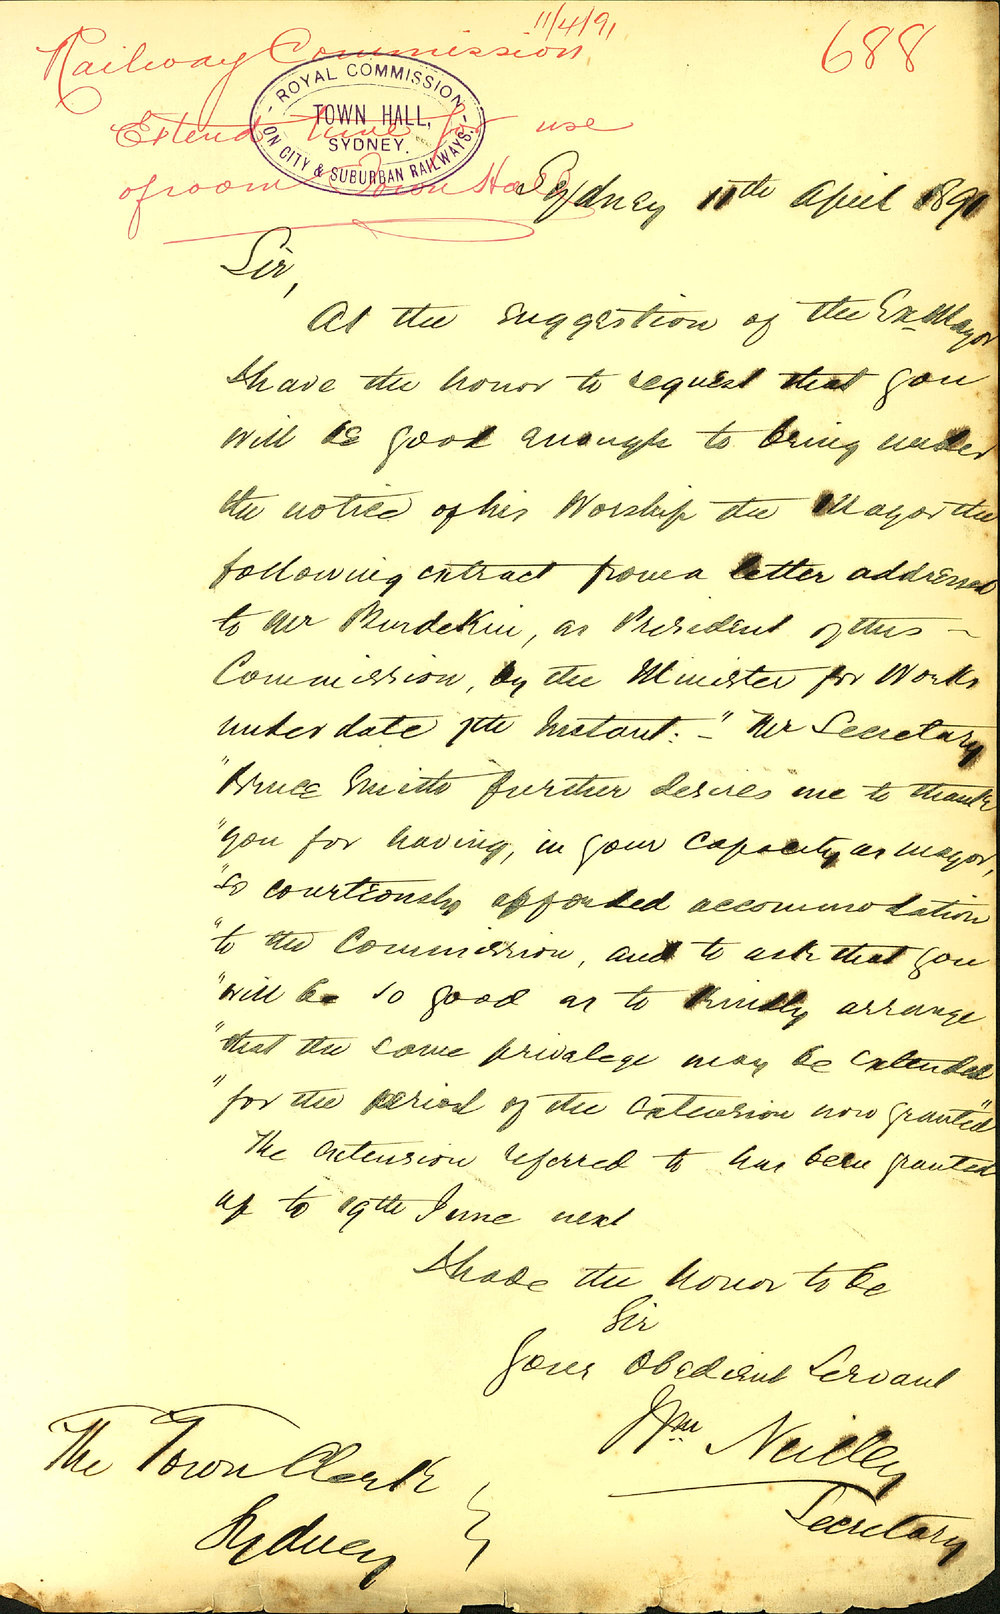 11/4/91
688
Railway Commission
Extend time for use
of room Town Hall
ROYAL COMMISSION
TOWN HALL,
SYDNEY.
ON CITY & SUBURBAN RAILWAYS.
Sydney 11th April 1891
Sir,
At the suggestion of the Ex-Mayor
I have the honor to request that you
will be good enough to bring under
the notice of his Worship the Mayor the
following extract from a letter addressed
to Mr Burdekin, as President of this -
Commission, by the Minister for Works
under date 7th Instant: - " Mr Secretary
"Bruce Smith further desires me to thank
"you for having, in your capacity as mayor,
"so courteously afforded accommodation
"to the Commission, and to ask that you
"will be so good as to kindly arrange
"that the same privalege may be extended
"for the period of the extension now granted"
The extension referred to has been granted
up to 19th June next
I have the honor to be
Sir
Your Obedient Servant
Wm Neilley
Secretary
The Town Clerk
Sydney